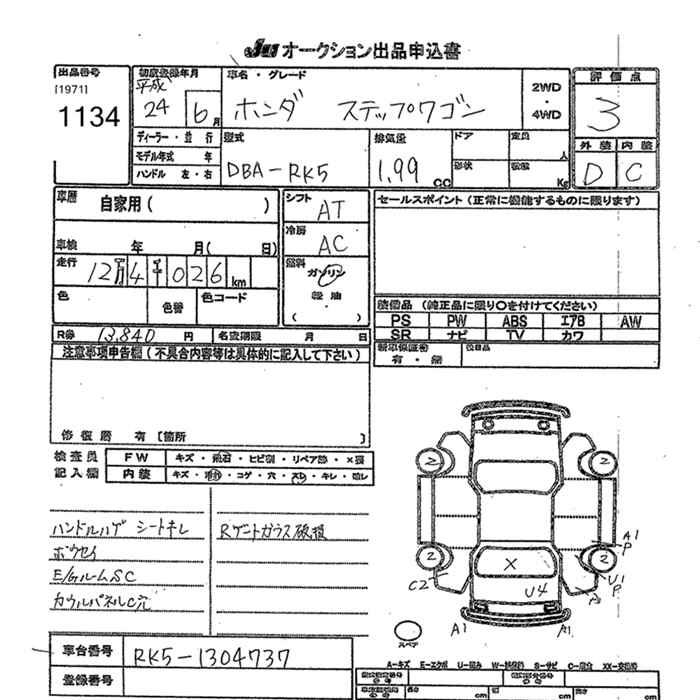 JU オークション出品申込書
出品番号
[1971]
1134
初度登録年月
平成
24 6月
車名・グレード
ホンダ ステップワゴン
2WD
・
4WD
評価点
3
外装 内装
D C
ディーラー・並行
モデル年式 年
ハンドル 左・右
型式
DBA-RK5
排気量
1.99 CC
ドア
形状
定員
人
Kg
車歴
自家用( )
車検 年 月( 日)
走行
12万4千026km
色
色替
色コード
シフト
AT
冷房
AC
燃料
ガソリン
軽油
( )
セールスポイント(正常に機能するものに限ります)
装備品(純正品に限り○を付けてください)
PS PW ABS エアB AW
SR ナビ TV カワ
新車保証書
有・無
後日品
R券 13,840 円
名変期限 月 日
注意事項申告欄(不具合内容等は具体的に記入して下さい)
修復歴 有 [箇所 ]
検査員
記入欄
FW キズ・飛石・ヒビ割・リペア跡・X要
内装 キズ・汚れ・コゲ・穴・スレ・キレ・
ハンドルハゲ シートキレ
Rゲートガラス破損
E/GルームSC
カウルパネルC穴
2 2
2 2
X
U4
C2
A1
P
U1
P
A1 A1
スペア
車台番号
RK5-1304737
登録番号
A-キズ E-エクボ U-凹み S-サビ C-腐食 XX-交換済
cm cm cm